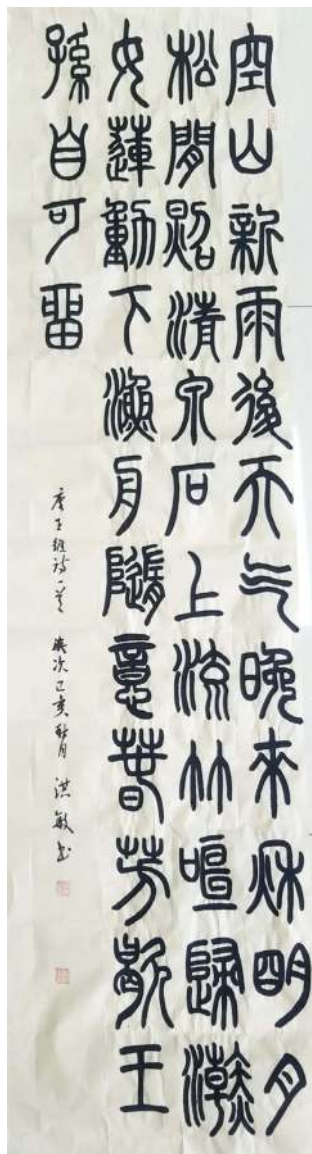 空山新雨後天气晚來秋明月
松間照清泉石上流竹喧歸澣
女蓮動下漁舟隨意春芳歇王
孫自可留
唐王維詩一首 歲次己亥秋月 洪敏书